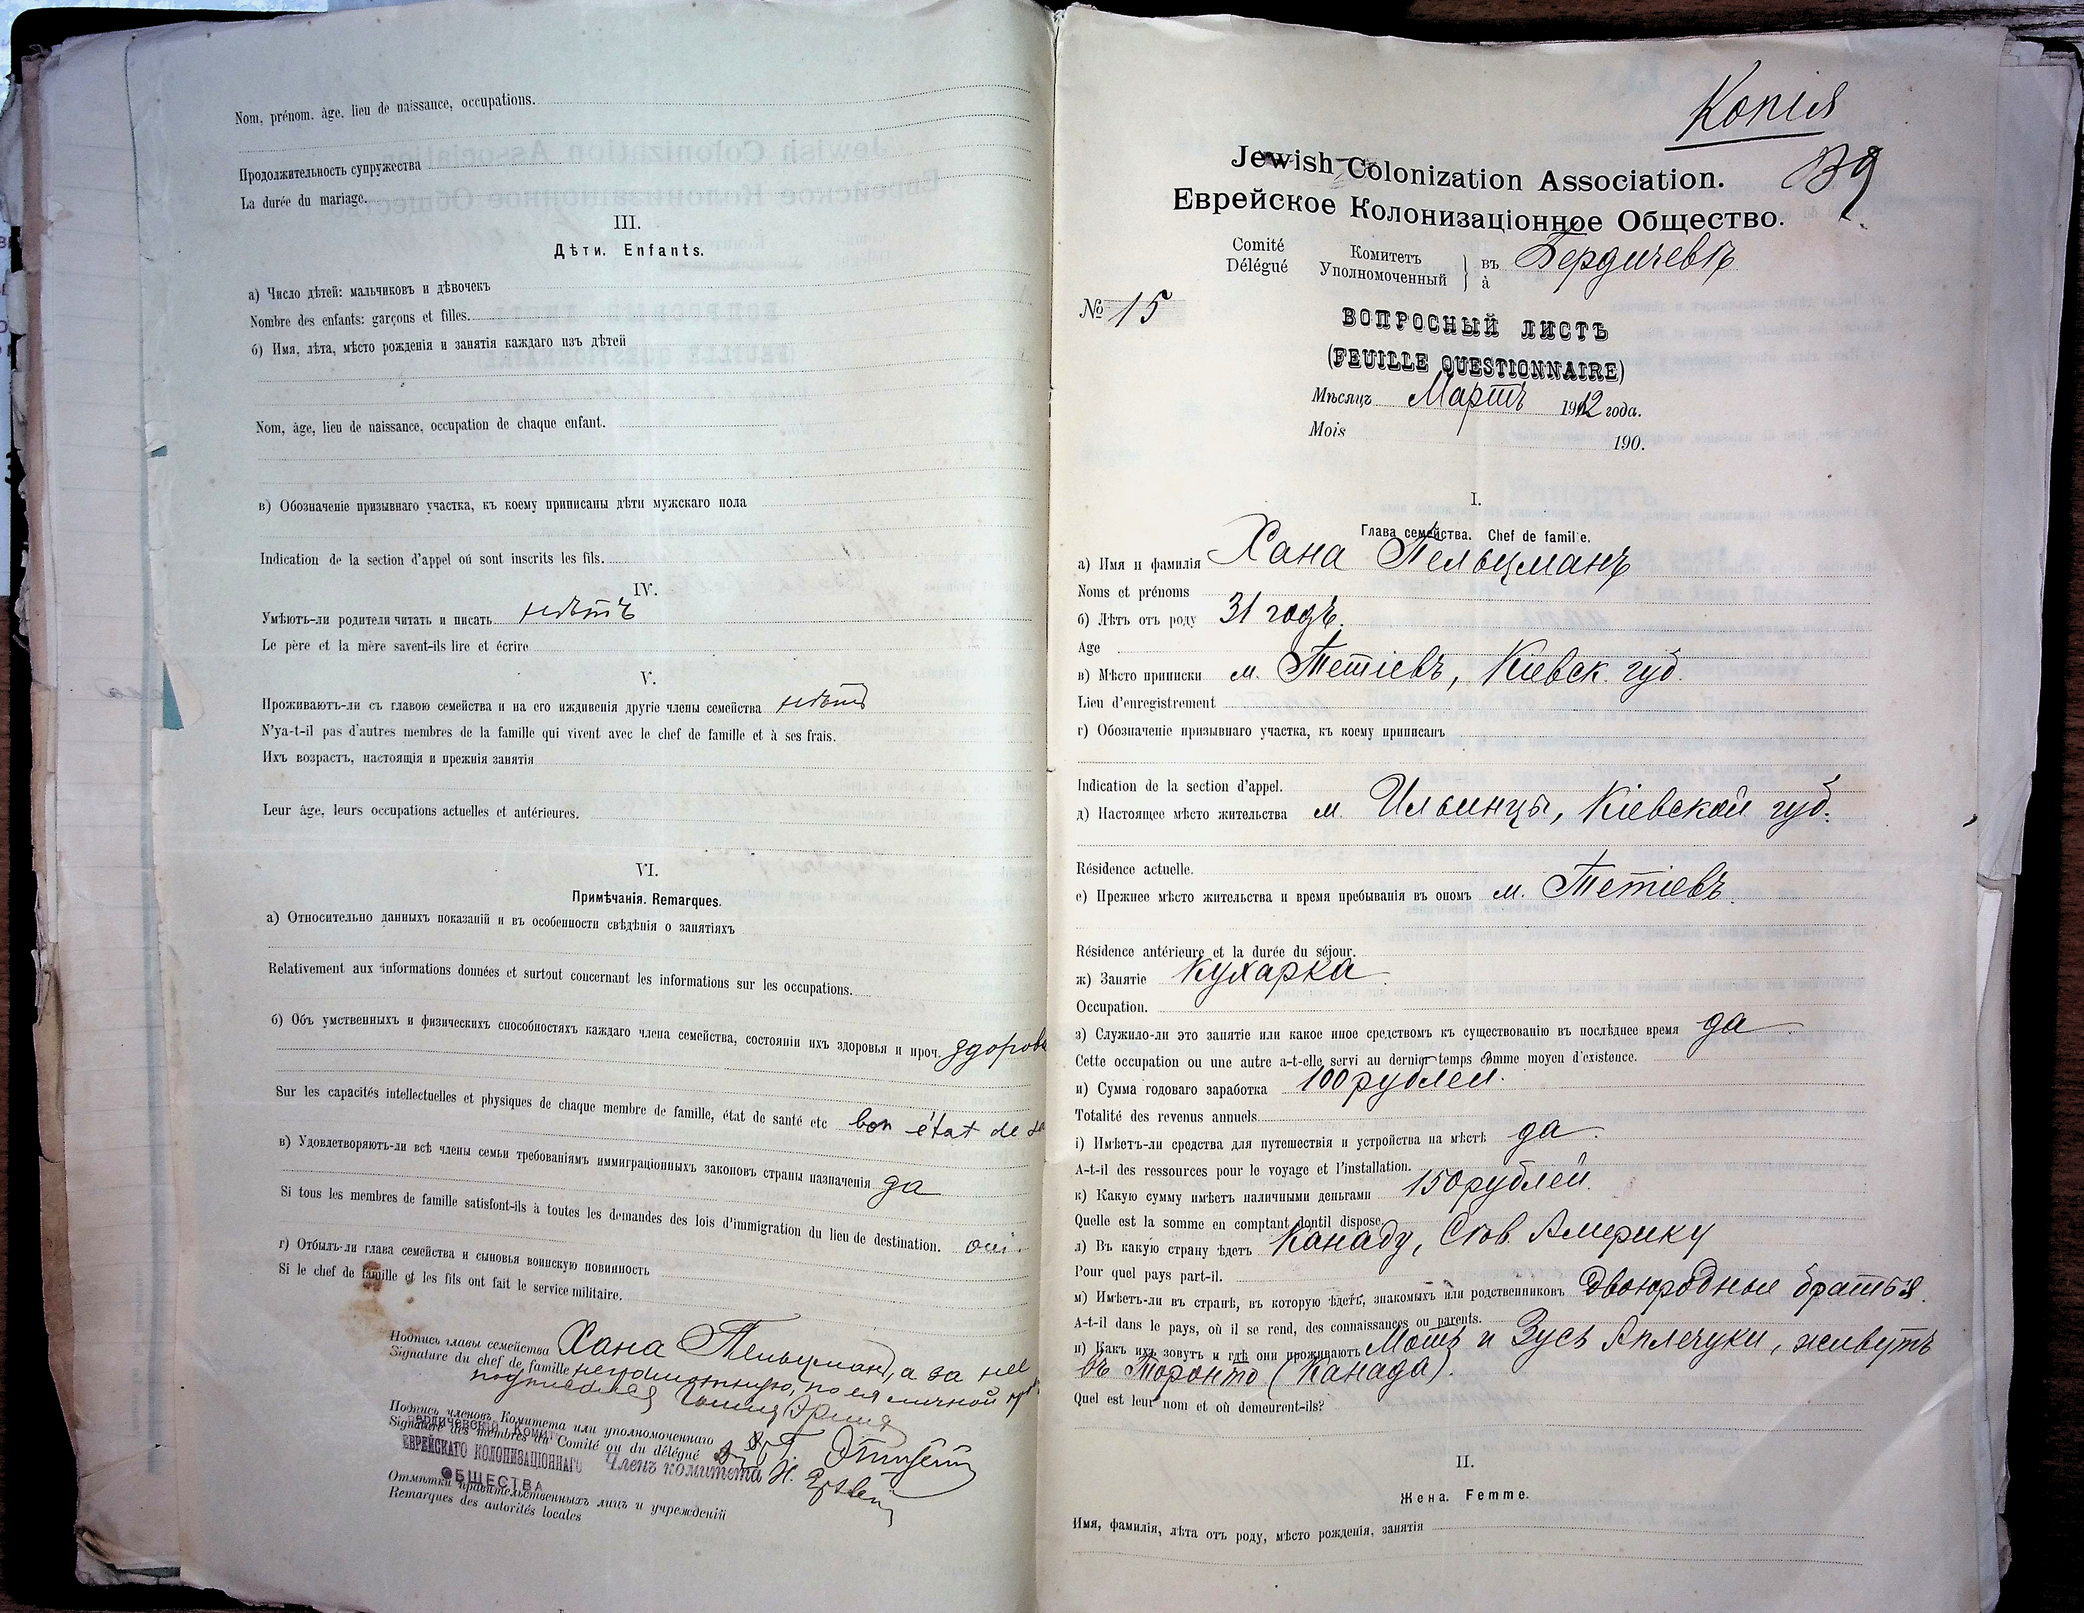 Nom, prénom. âge, lieu de naissance, occupations.
Продолжительность супружества
La durée du mariage.
III.
Дѣти. Enfants.
а) Число дѣтей: мальчиковъ и дѣвочекъ
Nombre des enfants: garçons et filles.
б) Имя, лѣта, мѣсто рожденія и занятія каждаго изъ дѣтей
Nom, âge, lieu de naissance, occupation de chaque enfant.
в) Обозначеніе призывнаго участка, къ коему приписаны дѣти мужскаго пола
Indication de la section d'appel oú sont inscrits les fils.
IV.
Умѣютъ-ли родители читать и писать нѣтъ
Le père et la mère savent-ils lire et écrire
V.
Проживаютъ-ли съ главою семейства и на его иждивенія другіе члены семейства нѣтъ
N'ya-t-il pas d'autres membres de la famille qui vivent avec le chef de famille et à ses frais.
Ихъ возрастъ, настоящія и прежнія занятія
Leur âge, leurs occupations actuelles et antérieures.
VI.
Примѣчанія. Remarques.
а) Относительно данныхъ показаній и въ особенности свѣдѣнія о занятіяхъ
Relativement aux informations données et surtout concernant les informations sur les occupations.
б) Объ умственныхъ и физическихъ способностяхъ каждаго члена семейства, состояніи ихъ здоровья и проч.
Sur les capacités intellectuelles et physiques de chaque membre de famille, état de santé etc bon état de
в) Удовлетворяютъ-ли всѣ члены семьи требованіямъ иммиграціонныхъ законовъ страны назначенія да
Si tous les membres de famille satisfont-ils à toutes les demandes des lois d'immigration du lieu de destination. oui
г) Отбылъ-ли глава семейства и сыновья воинскую повинность
Si le chef de famille et les fils ont fait le service militaire.
Подпись главы семейства Хана Пельцманъ, а за нее
Signature du chef de famille неграмотную, по ея личной
подписался
Подпись членовъ Комитета или уполномоченнаго
Signature des membres du Comité ou du délégué
Бердичевскій Комит.
ЕВРЕЙСКАГО КОЛОНИЗАЦІОННАГО Членъ комитета
ОБЩЕСТВА
Отмѣтки правительственныхъ лицъ и учрежденій
Remarques des autorités locales
Копія
Jewish Colonization Association.
Еврейское Колонизаціонное Общество.
Comité Délégué Комитетъ Уполномоченный въ à Бердичевѣ
№ 15
ВОПРОСНЫЙ ЛИСТЪ
(FEUILLE QUESTIONNAIRE)
Мѣсяцъ Мартъ 1912 года.
Mois 190.
I.
Глава семейства. Chef de famille.
а) Имя и фамилія Хана Пельцманъ
Noms et prénoms
б) Лѣтъ отъ роду 31 годъ.
Age
в) Мѣсто приписки м. Тетіевъ, Кіевск. губ.
Lieu d'enregistrement
г) Обозначеніе призывнаго участка, къ коему приписанъ
Indication de la section d'appel.
д) Настоящее мѣсто жительства м. Ильинцы, Кіевской губ.
Résidence actuelle.
е) Прежнее мѣсто жительства и время пребыванія въ ономъ м. Тетіевъ.
Résidence antérieure et la durée du séjour.
ж) Занятіе Кухарка
Occupation.
з) Служило-ли это занятіе или какое иное средствомъ къ существованію въ послѣднее время да
Cette occupation ou une autre a-t-elle servi au dernier temps comme moyen d'existence.
и) Сумма годоваго заработка 100 рублей.
Totalité des revenus annuels.
і) Имѣетъ-ли средства для путешествія и устройства на мѣстѣ да.
A-t-il des ressources pour le voyage et l'installation.
к) Какую сумму имѣетъ наличными деньгами 150 рублей.
Quelle est la somme en comptant dontil dispose.
л) Въ какую страну ѣдетъ Канаду, Сѣв. Америку
Pour quel pays part-il.
м) Имѣетъ-ли въ странѣ, въ которую ѣдетъ, знакомыхъ или родственниковъ Двоюродные братья.
A-t-il dans le pays, où il se rend, des connaissances ou parents.
н) Какъ ихъ зовутъ и гдѣ они проживаютъ и Зусь Аплечуки, живутъ
въ Торонто (Канада).
Quel est leur nom et où demeurent-ils?
II.
Жена. Femme.
Имя, фамилія, лѣта отъ роду, мѣсто рожденія, занятія